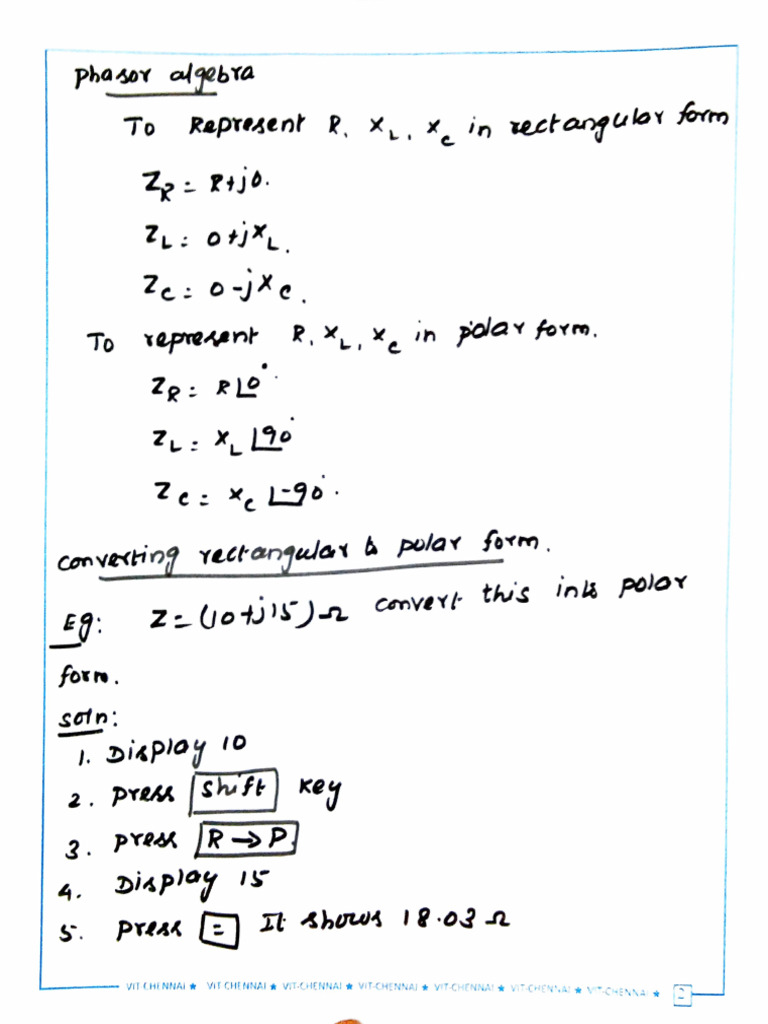 Phasor algebra
To Represent R, XL, Xc in rectangular form
ZR = R+j0.
ZL = 0+jXL.
Zc = 0-jXc.
To represent R, XL, Xc in polar form.
ZR = R∠0°.
ZL = XL∠90°
Zc = Xc∠-90°.
converting rectangular to polar form.
Eg: Z = (10+j15)Ω convert this into polar
form.
soln:
1. Display 10
2. press Shift key
3. press R→P.
4. Display 15
5. press = It shows 18.03 Ω
VIT-CHENNAI ★ VIT CHENNAI ★ VIT-CHENNAI ★ VIT-CHENNAI ★ VIT-CHENNAI ★ VIT-CHENNAI ★ VIT-CHENNAI ★ 2